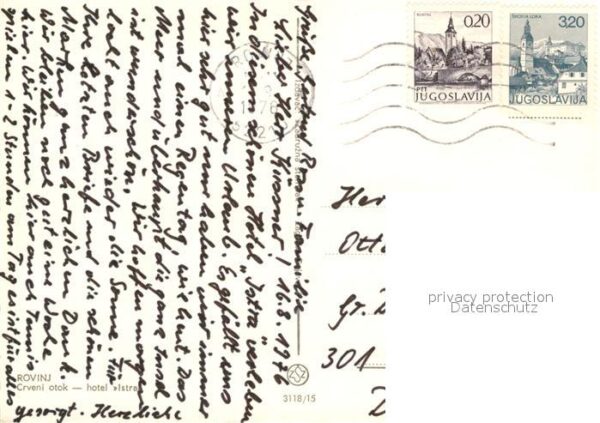 Lieber Herr Küssner! 16.8.1976
In diesem schönen Hotel "Istra" verleben
wir unseren Urlaub. Es gefällt uns
hier sehr gut nur haben wir immer
mal einen Regentag, wie heut. Das
Meer und überhaupt die ganze Insel
ist wunderschön. Wir hoffen morgen
lacht auch wieder die Sonne. Für
Ihre Briefe und die schönen
Marken ganz herzlichen Dank.
Wir bleiben noch gut eine Woche
hier. Wir können hier auch Tennis
spielen 1-2 Stunden am Tag es ist für alles
gesorgt. Herzliche
Grüße Familie
ROVINJ
Crveni otok — hotel »Istra«
3118/15
BOHINJ
0.20
PTT
JUGOSLAVIJA
ŠKOFJA LOKA
3,20
JUGOSLAVIJA
Her
Otto
Gr.
301
D
privacy protection
Datenschutz